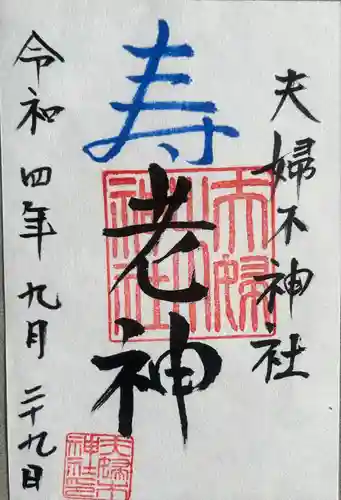 夫婦木神社
寿老神
令和四年 九月 二十九日
夫婦木
神社
夫婦木
神社之印